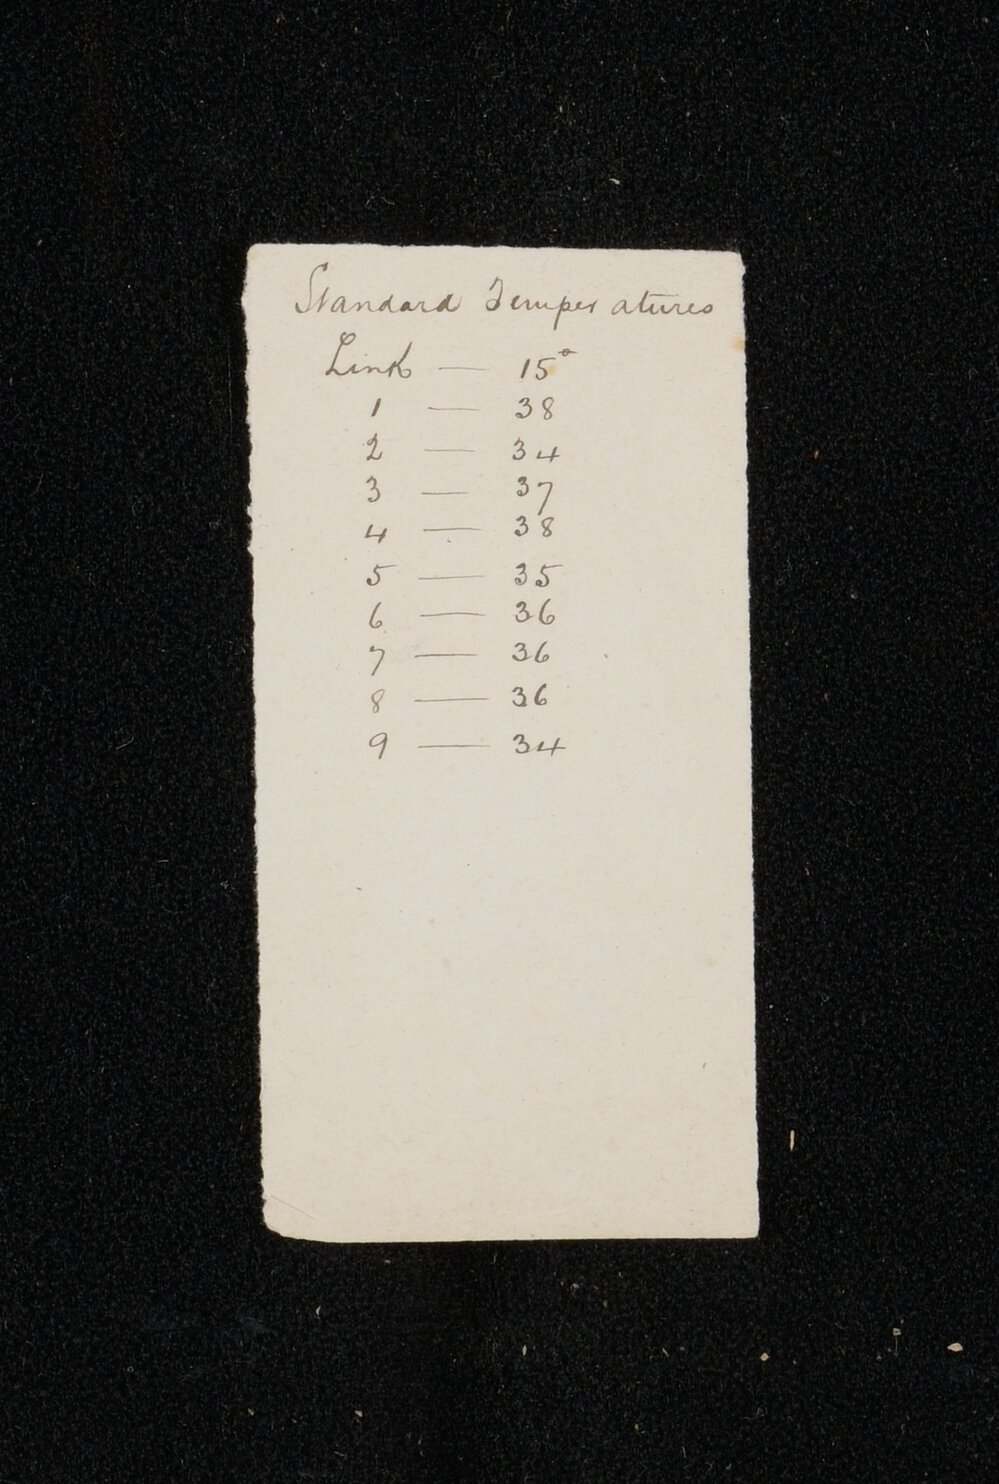 Standard Temperatures
Link — 15°
1 — 38
2 — 34
3 — 37
4 — 38
5 — 35
6 — 36
7 — 36
8 — 36
9 — 34